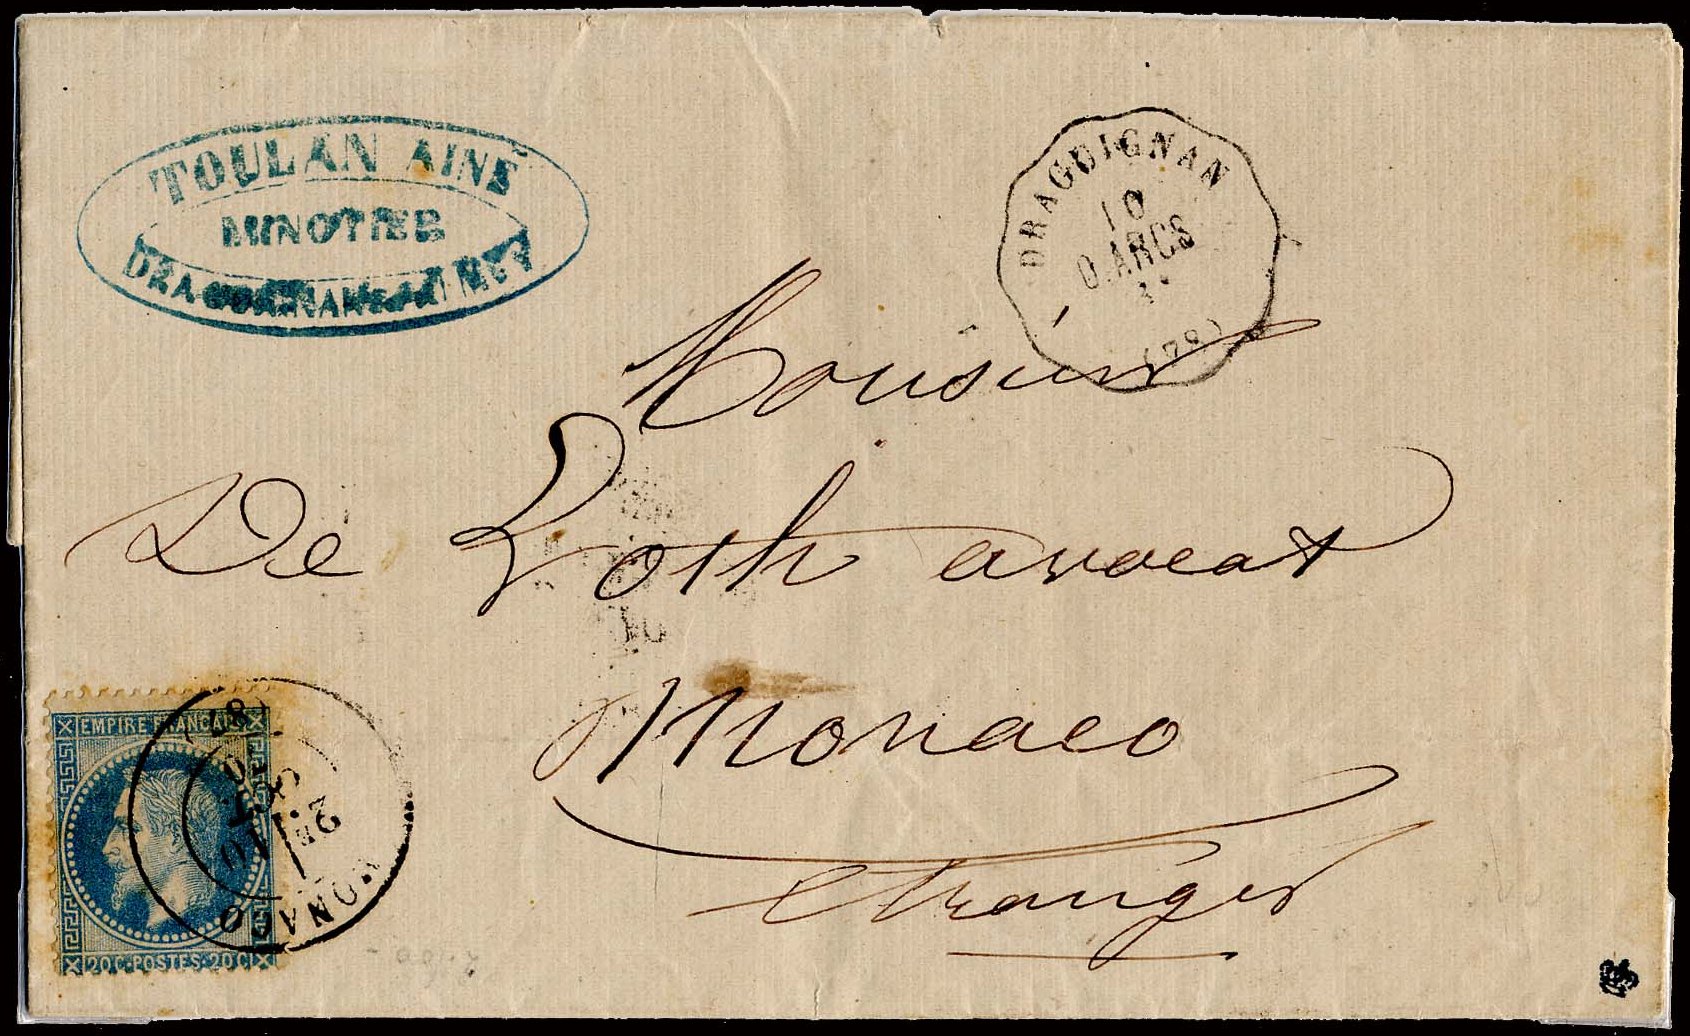 TOULAN AINÉ
MINOTIER
DRAGUIGNAN
DRAGUIGNAN
10
D.ARCS
(78)
Monsieur
De Loth avocat
Monaco
etranger
EMPIRE FRANCAIS
20C·POSTES·20C
(87)
2E
10
OCT
70
MONACO